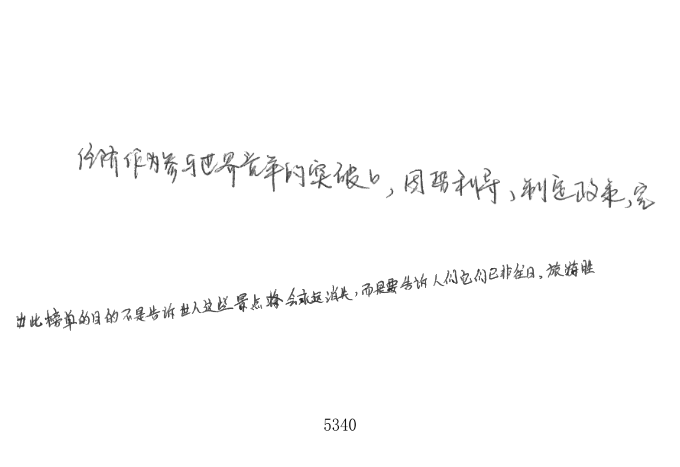 经济作为参与世界竞争的突破口,因势利导,制定政策,完
出此榜单的目的不是告诉世人这些景点将会永远消失,而是要告诉人们它们已非往日、旅游胜
5340